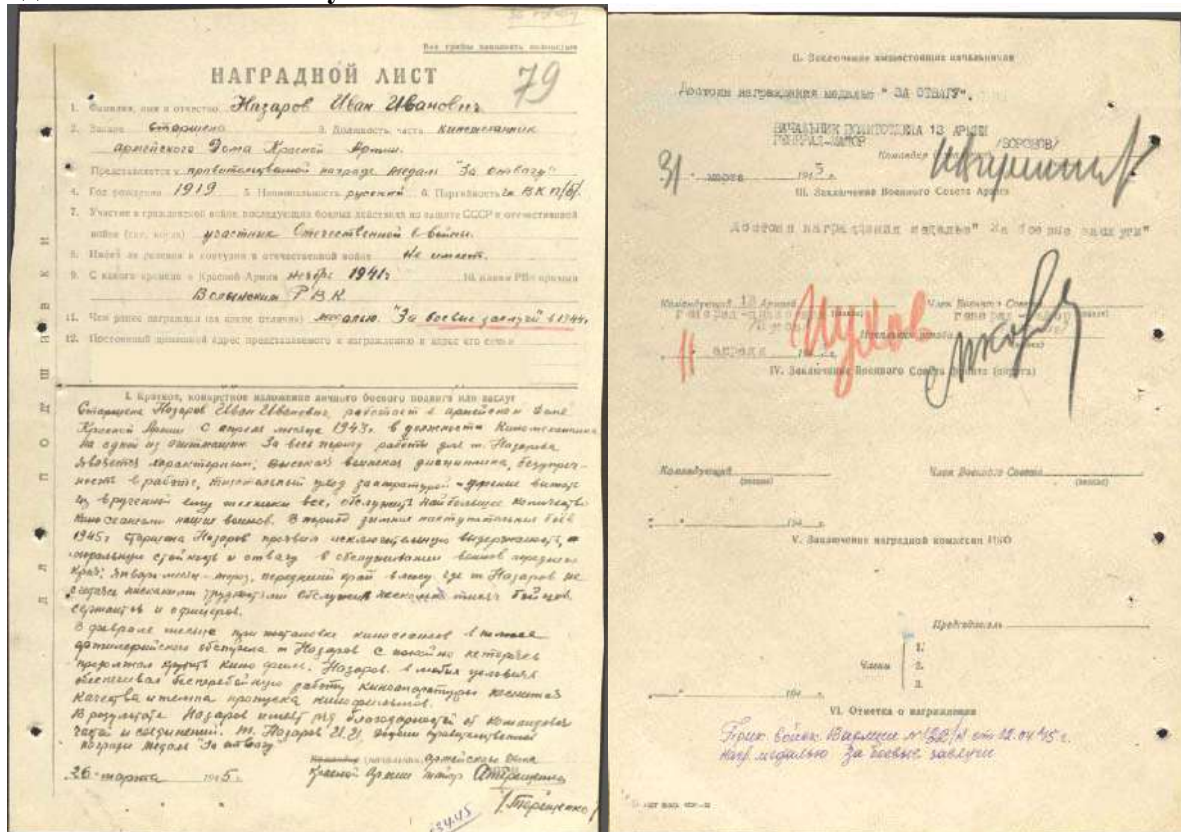 Все графы заполнять полностью
НАГРАДНОЙ ЛИСТ
79
1. Фамилия, имя и отчество Назаров Иван Иванович
2. Звание Старшина 3. Должность, часть Киномеханник
армейского Дома Красной Армии.
Представляется к правительственной награде медаль "За отвагу"
4. Год рождения 1919 5. Национальность русский 6. Партийность ВКП/б/.
7. Участие в гражданской войне, последующих боевых действиях по защите СССР и отечественной
войне (где, когда) участник Отечественной войны.
8. Имеет ли ранения и контузии в отечественной войне Не имеет.
9. С какого времени в Красной Армии 1941г 10. Каким РВК призван
РВК
11. Чем ранее награжден (за какие отличия) медалью "За боевые заслуги" в 1944г.
12. Постоянный домашний адрес представляемого к награждению и адрес его семьи
I. Краткое, конкретное изложение личного боевого подвига или заслуг
Старшина Назаров Иван Иванович, работает в армейском Доме
Красной Армии с апреля месяца 1943г. в должности Киномеханика
на одной из За весь период работы для т. Назарова
является характерным: высокая воинская дисциплина, безупреч-
ность в работе, тщательный уход за аппаратурой
из врученной ему техники все, обслужить наибольшее количество
киносеансами наших воинов. В период зимних наступательных боев
1945г старшина Назаров проявил исключительную выдержанность,
моральную стойкость и отвагу в обслуживании воинов переднего
края; январь месяц - мороз, передний край в лесу, где т Назаров не
считаясь никакими трудностями обслужил несколько тысяч бойцов
сержантов и офицеров.
В феврале месяце при постановке киносеансов
артиллерийского обстрела т Назаров спокойно
продолжал крутить кино фильм. Назаров в любых условиях
обеспечивал бесперебойную работу киноаппаратуры
качества и темпа пропуска кинофильмов.
В результате Назаров имеет ряд благодарностей от командования
частей и соединений. т. Назаров И.И. достоин правительственной
награды медаль "За отвагу"
(начальник) армейского Дома
26 марта 1945 г. Красной Армии майор
/Терещенко/
II. Заключение вышестоящих начальников
Достоин награждения медалью " ЗА ОТВАГУ".
НАЧАЛЬНИК ПОЛИТОТДЕЛА 13 АРМИИ
ГЕНЕРАЛ-МАЙОР /ВОРОНОВ/
31 марта 194
III. Заключение Военного Совета Армии
достоин награждения медалью" За боевые заслуги"
Командующий 13 Армией Член Военного Совета
генерал-майор
11 апреля 194 г.
IV. Заключение Военного Совета фронта (округа)
Командующий Член Военного Совета
(звание) (звание)
" " 194 г.
V. Заключение наградной комиссии НКО
Председатель
Члены 1.
2.
3.
" " 194 г.
VI. Отметка о награждении
от 12.04.45 г.
нагр. медалью За боевые заслуги